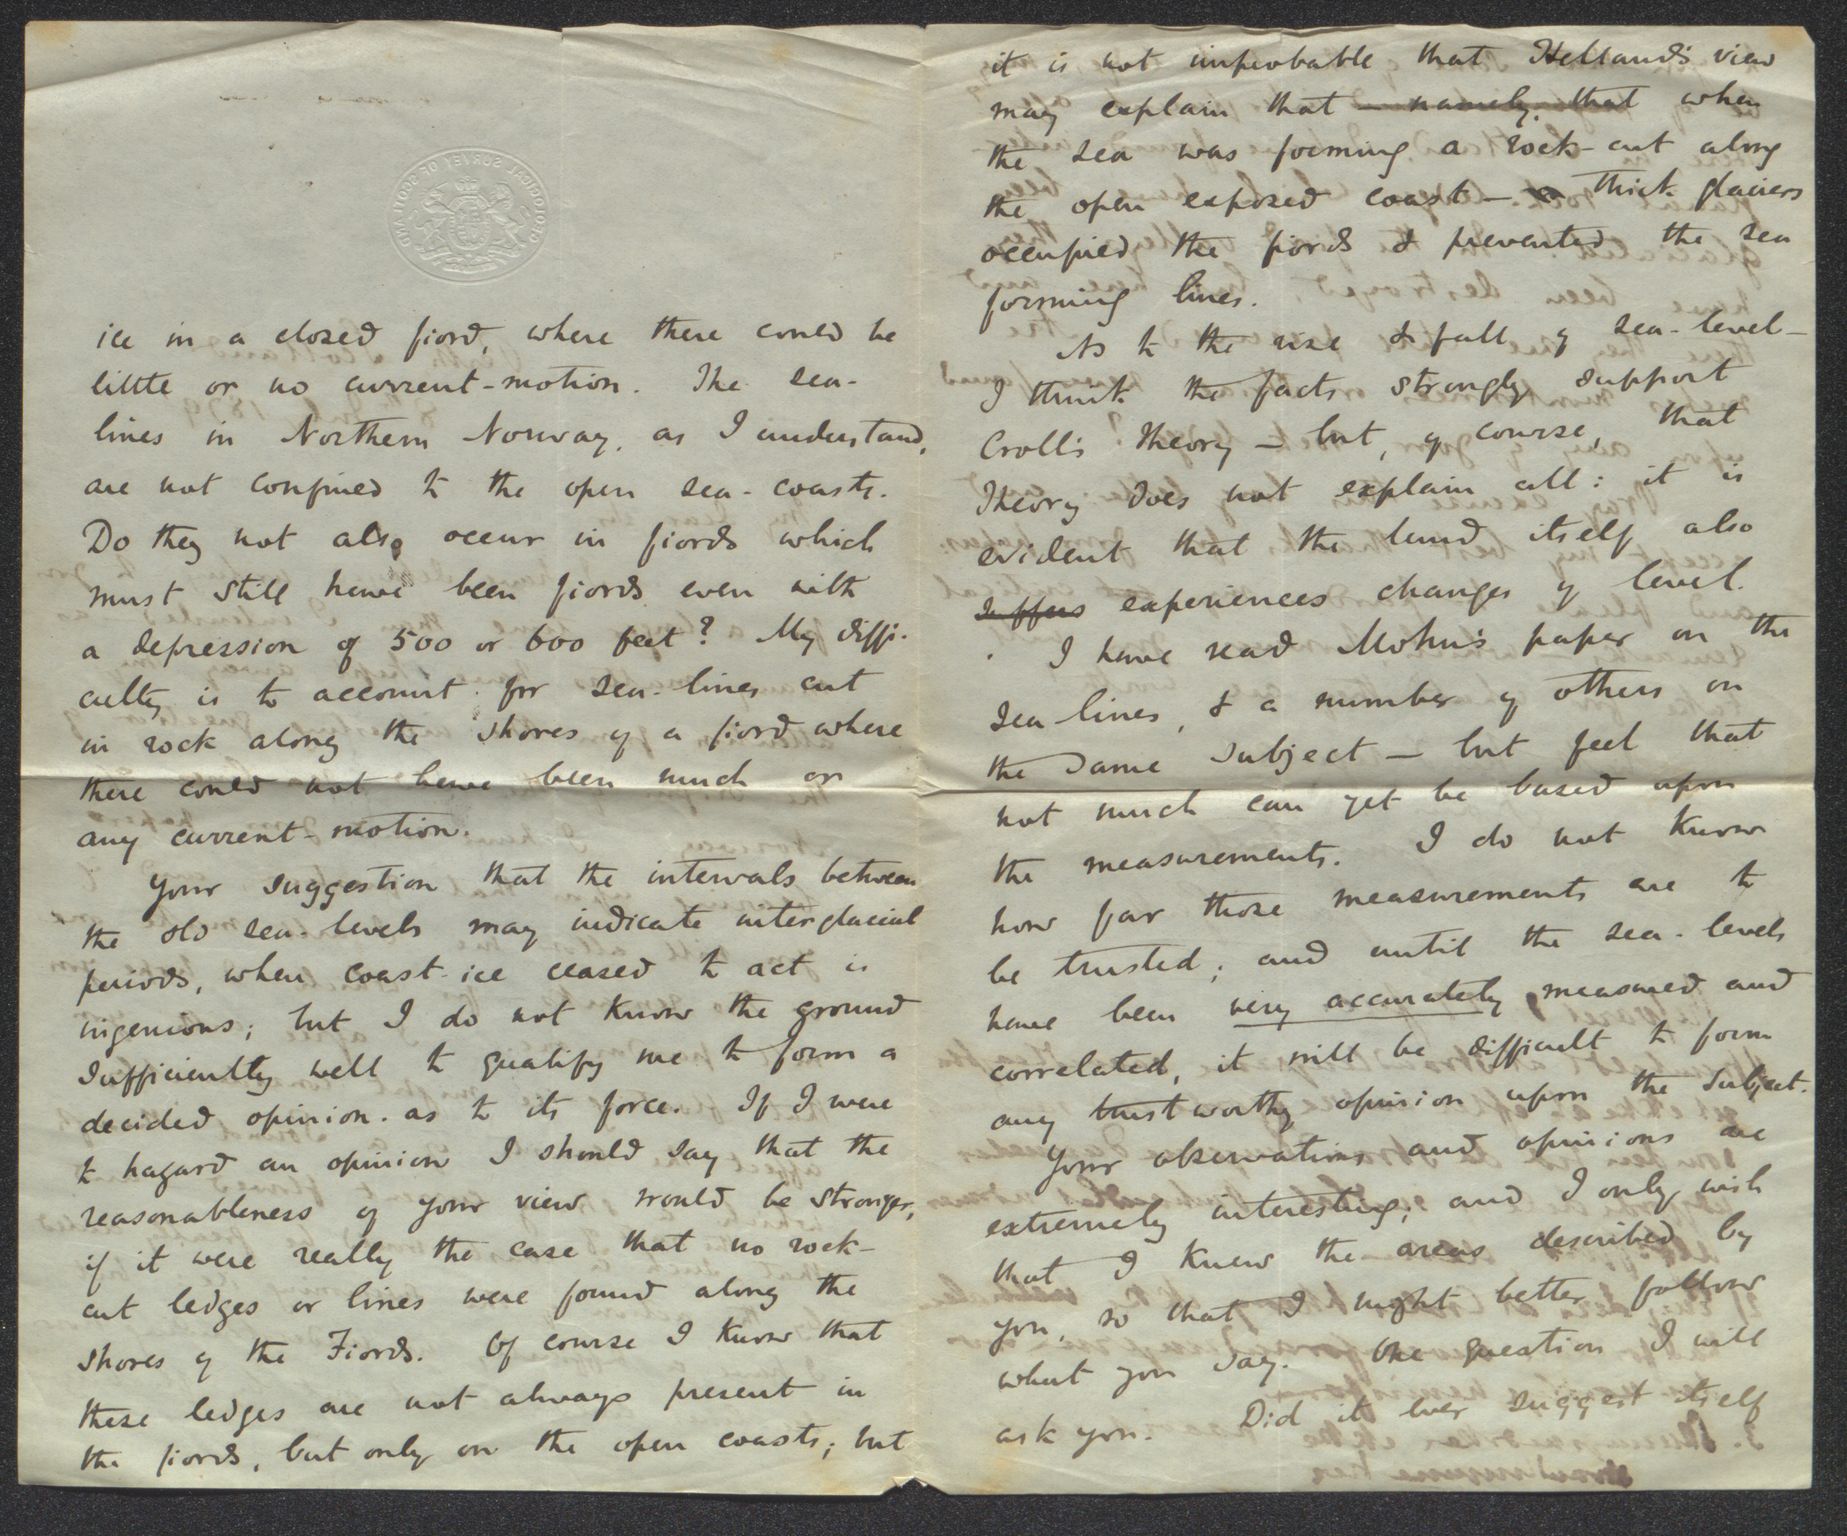 ice in a closed fiord, where there could be
little or no current-motion. The sea-
lines in Northern Norway, as I understand,
are not confined to the open sea-coasts.
Do they not also occur in fiords which
must still have been fiords even with
a depression of 500 or 600 feet? My diffi-
culty is to account for sea-lines cut
in rock along the shores of a fiord where
there could not have been much or
any current-motion.
Your suggestion that the intervals between
the old sea-levels may indicate interglacial
periods, when coast-ice ceased to act is
ingenious; but I do not know the ground
sufficiently well to qualify me to form a
decided opinion as to its force. If I were
to hazard an opinion I should say that the
reasonableness of your view would be stronger,
if it were really the case that no rock-
cut ledges or lines were found along the
shores of the Fiords. Of course I know that
these ledges are not always present in
the fiords, but only on the open coasts; but
it is not improbable that Helland's view
may explain that — namely, that when
the sea was forming a rock-cut along
the open exposed coast — thick glaciers
occupied the fiords & prevented the sea
forming lines.
As to the rise & fall of sea-level —
I think the facts strongly support
Croll's theory — but, of course, that
theory does not explain all: it is
evident that the land itself also
suffers experiences changes of level.
I have read Mohn's paper on the
sea lines, & a number of others on
the same subject — but feel that
not much can yet be based upon
the measurements. I do not know
how far those measurements are to
be trusted; and until the sea-levels
have been very accurately measured and
correlated, it will be difficult to form
any trustworthy opinion upon the subject.
Your observations and opinions are
extremely interesting; and I only wish
that I knew the areas described by
you, so that I might better follow
what you say. One question I will
ask you. Did it ever suggest itself